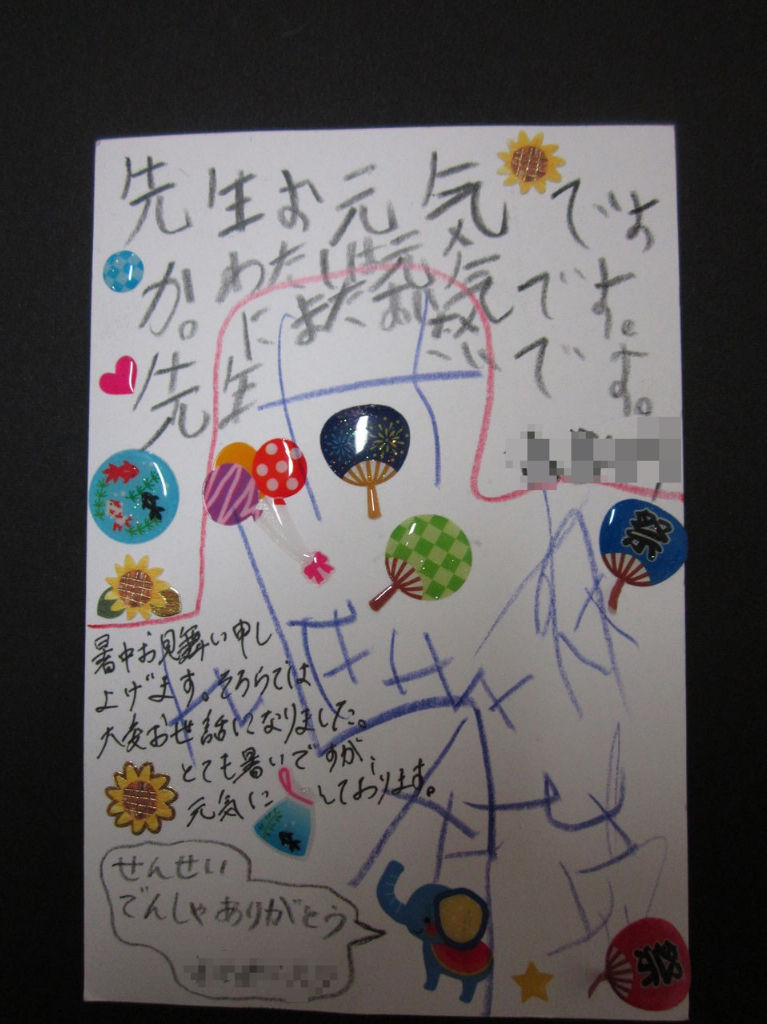 先生お元気です
か。わたしは元気です。
先生にまたお会いたいです。
祭
暑中お見舞い申し
上げます。そろらでは
大変お世話になりました。
とても暑いですが、
元気にしております。
せんせい
でんしゃありがとう
祭